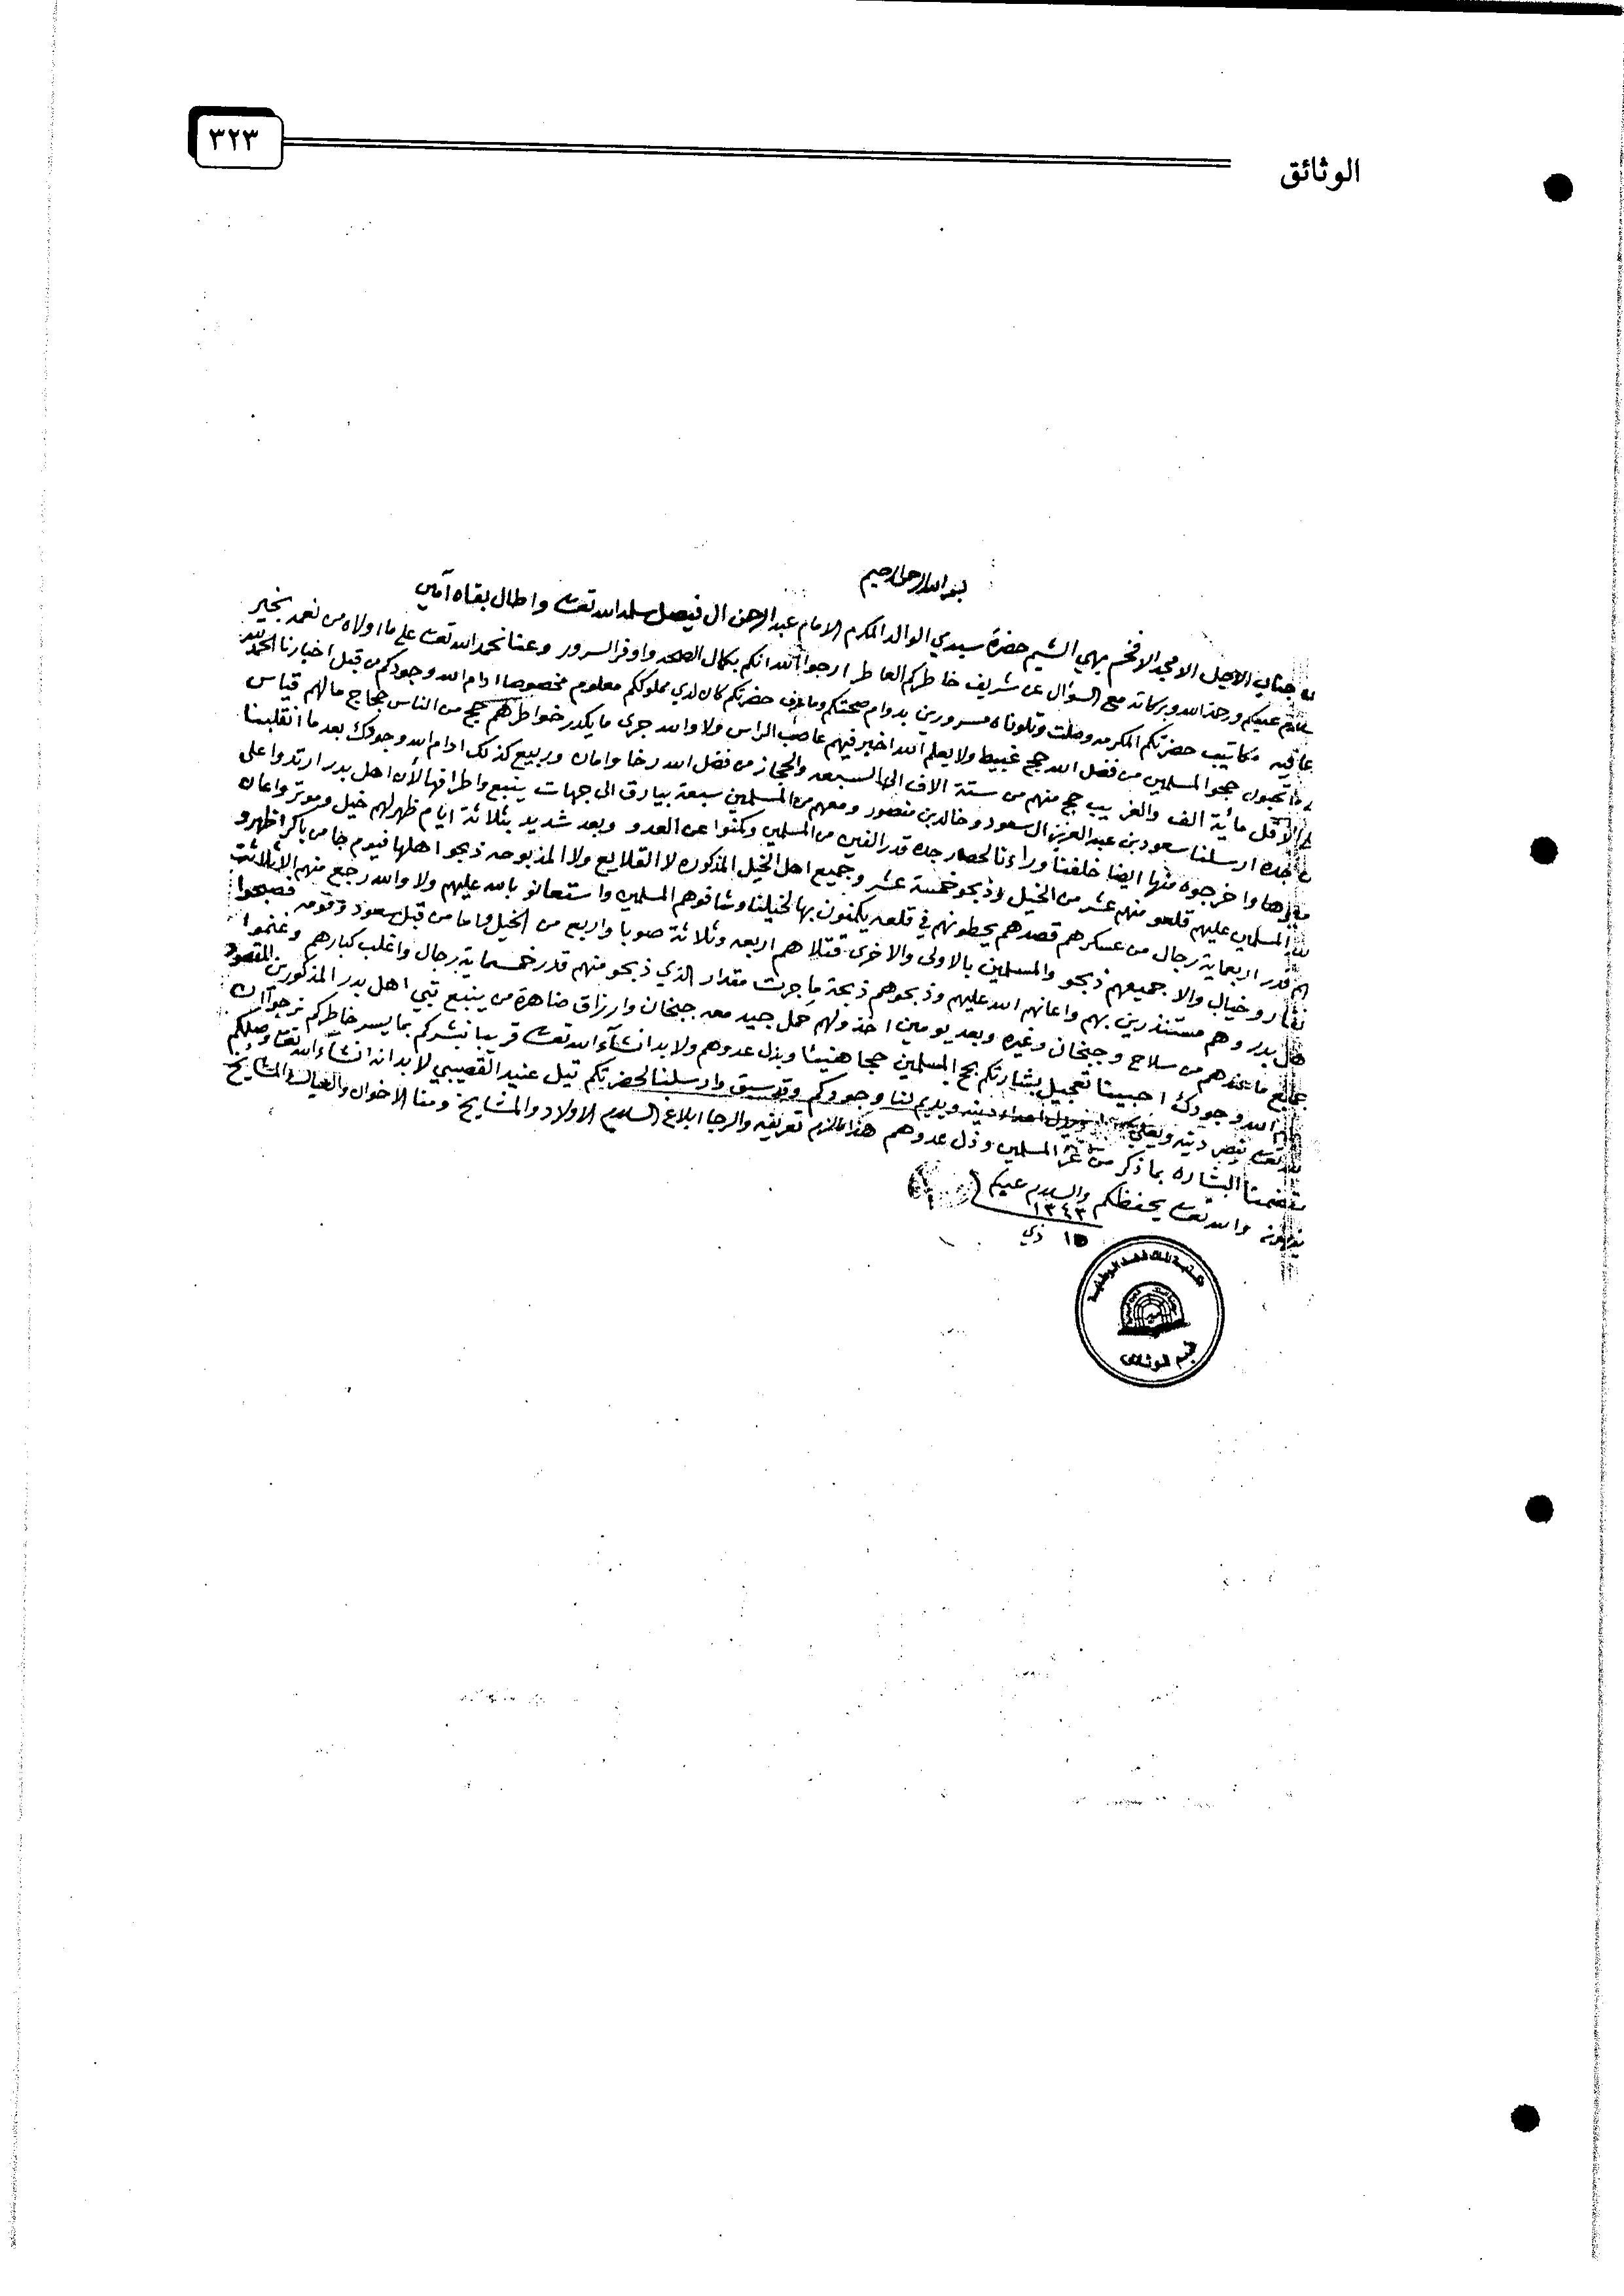 ٣٢٣
الوثائق
بسم الله الرحمن الرحيم
جناب الاجل الامجد الافخم بهي الشيم حضرة سيدي الوالد المكرم الامام عبدالرحمن ال فيصل سلمه الله تعالى واطال بقاه آمين
عليكم ورحمة الله وبركاته مع السؤال عن شريف خاطركم العاطر ارجوا الله انكم بكمال الصحه واوفر السرور وعنا نحمد الله تعالى على ما اولاه من نعمه بخير
عافيه مكاتيب حضرتكم المكرمه وصلت وتلوناه مسرورين بدوام صحتكم وما عرف حضرتكم كان لدي مملوككم معلوم مخصوصا ادام الله وجودكم من قبل اخبارنا الحمدلله
ما تحبون حجوا المسلمين من فضل الله حج غبيط ولا يعلم الله اخبر فيهم عاصب الراس ولا والله جرى ما يكدر خواطرهم حج من الناس حجاج مالهم قياس
الاقل مأية الف والغز يبب حج منهم من ستة الاف الى السبعه والحجاز من فضل الله رخا وامان وربيع كذلك ادام الله وجودك بعد ما انقلبنا
جده ارسلنا سعود بن عبدالعزيز ال سعود وخالد بن منصور ومعهم من المسلمين سبعة بيارق الى جهات ينبع واطرافها لأن اهل بدر ارتدوا على
واخرجوه منها ايضا خلفنا وراءنا لحصار جده قدر الفين من المسلمين وكمنوا عن العدو وبعد شديد بثلاثة ايام ظهر لهم خيل وموتر واعان
المسلمين عليهم قلعو منهم عشر من الخيل وذبحو خمسة عشر وجميع اهل الخيل المذكوره لا القلايع ولا المذبوحه ذبحو اهلها فيوم جا من باكر اظهرو
قدر اربعماية رجال من عسكرهم قصدهم يحطونهم في قلعه يكمنون بها لخيلنا وشافوهم المسلمين واستعانو بالله عليهم ولا والله رجع منهم الا ثلاثت
وخيال والا جميعهم ذبحو والمسلمين بالاولى والاخرى قتلاهم اربعه وثلاثة صوبا واربع من الخيل واما من قبل سعود وقومه فصبحوا
بدر وهم مستنذرين بهم واعانهم الله عليهم وذبحوهم ذبحة ما جرت مقدار الذي ذبحو منهم قدر خمسماية رجال واغلب كبارهم وغنموا
ما عندهم من سلاح وجبخان وغيره وبعد يومين اخذو لهم حمل جيد معه جبخان وارزاق ضاهرة من ينبع تبي اهل بدر المذكورين المقصود
الله وجودك احببنا تعجيل بشارتكم بحج المسلمين حجا هنيئا وبذل عدوهم ولا بد انشاء الله تعالى قريبا نبشركم بما يسر خاطركم نرجوا ان
تعالى ينصر دينه ويعلي اعداء دينه ويديم لنا وجودكم وقد سبق وارسلنا لحضرتكم تيل عنيد القصيبي لا بد انه انشاء الله تعالى وصلكم
البشاره بما ذكر من عز المسلمين وذل عدوهم هذا مالزم تعريفه والرجا ابلاغ السلام الاولاد والمشايخ ومنا الاخوان والعيال والمشايخ
والله تعالى يحفظكم والسلام عليكم
١٣٤٣
١٥ ذي
مكتبة الملك فهد الوطنية
قسم الوثائق